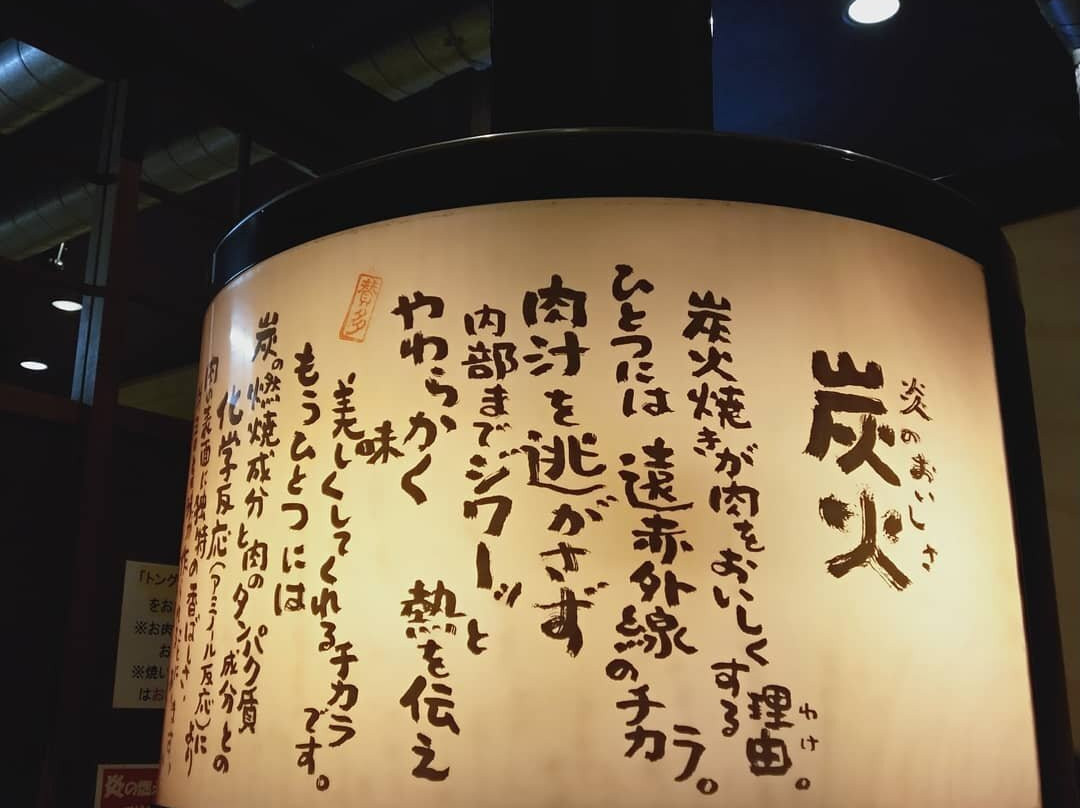 炎のおいしさ
炭火
炭火焼きが肉をおいしくする理由。
わけ
ひとつには遠赤外線のチカラ。
肉汁を逃がさず
内部までジワーッと
やわらかく熱を伝え
味
美しくしてくれるチカラです。
もうひとつには
炭の燃焼成分と肉のタンパク質
化学反応(アミノール反応)に
成分との
より
肉の表面に独特の香ばしさ
「トング
をお
※お肉
お
※焼い
はお
炎の